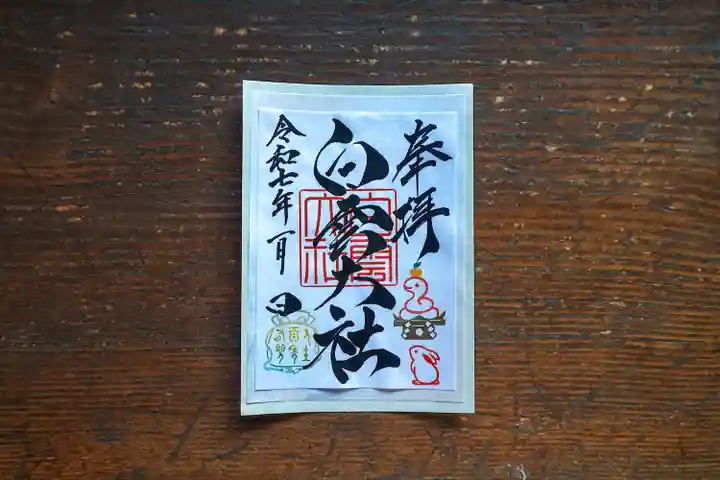 奉拝
白雲大社
令和七年一月 日